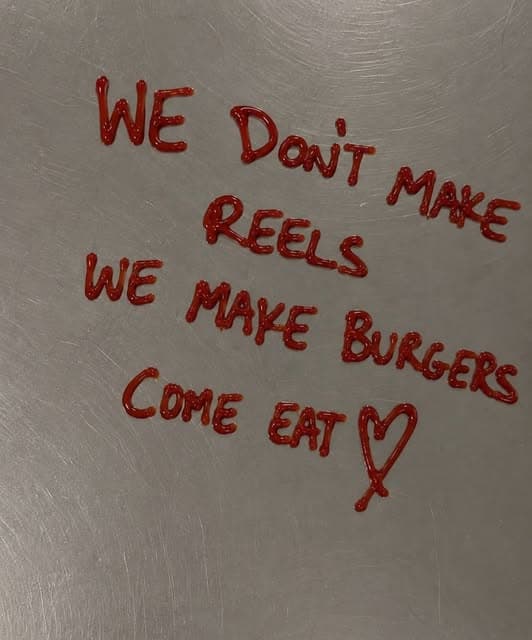 WE DON'T MAKE
REELS
WE MAKE BURGERS
COME EAT